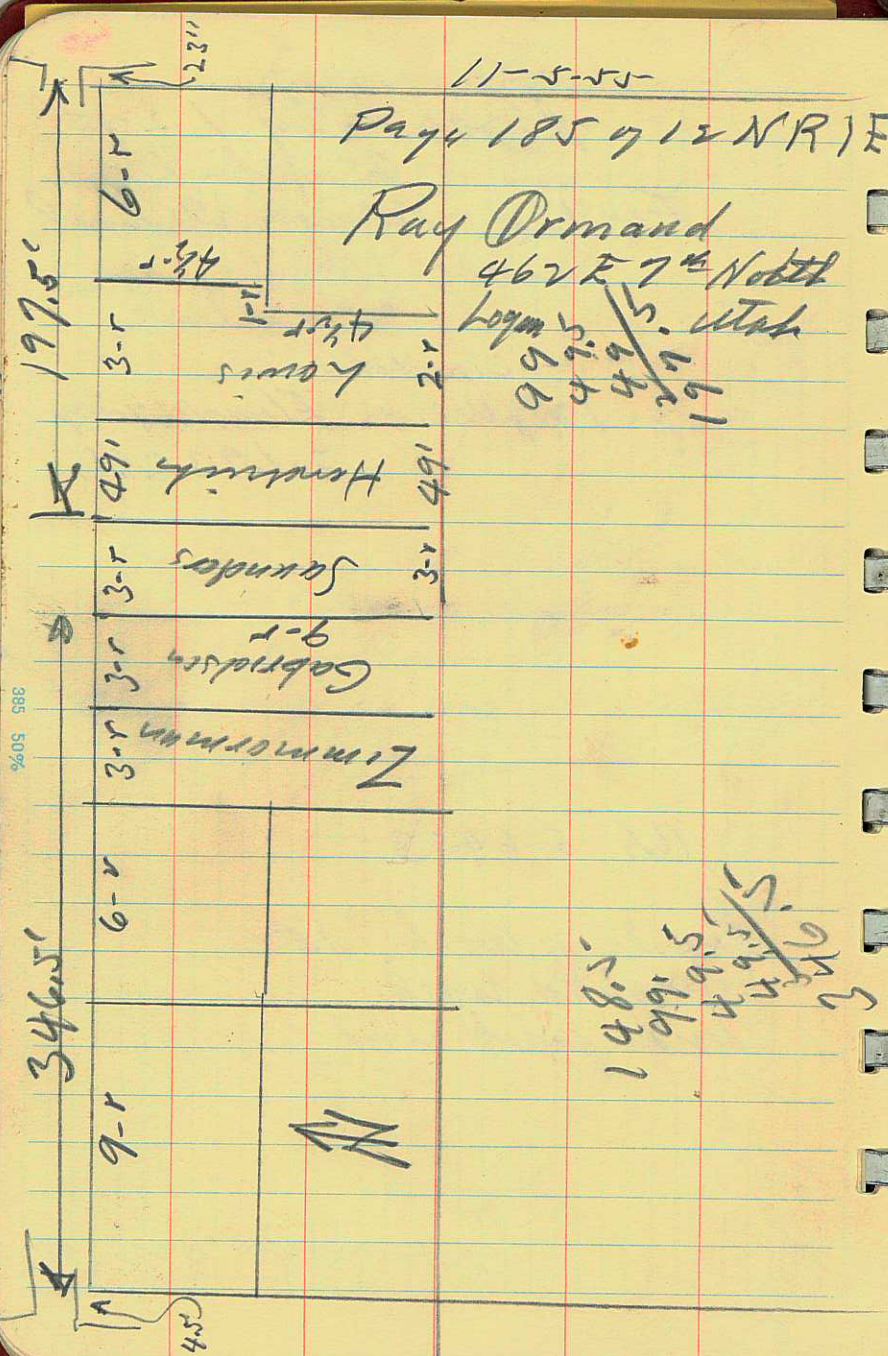 11-5-55
23"
Page 185 of 12 N R 1 E
Ray Ormand
462 E 7th North
Logan Utah
99
49.5
49
197.5
197.5'
6-r
4½-r
1-r
4½-r
3-r
Lewis
2-r
49'
Hendrich
49'
3-r
Saunders
3-r
3-r
Gabrielsen
9-r
3-r
Zimmerman
6-r
346.5'
9-r
N
148.5
99.
49.5
49.5
346.5
45
385 50%